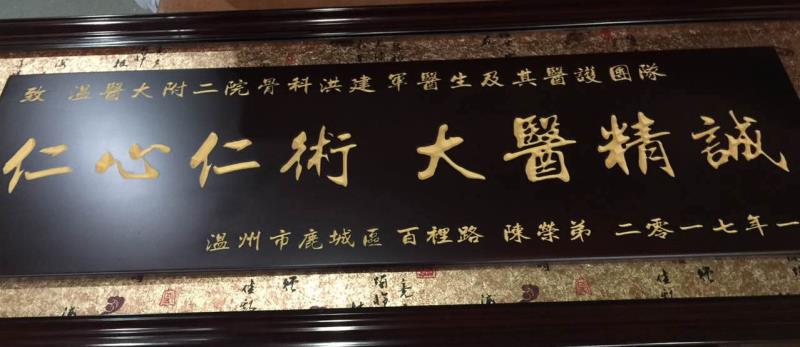 致 温醫大附二院骨科洪建軍醫生及其醫護團隊
仁心仁術 大醫精誠
温州市鹿城區 百裡路 陳榮弟 二零一七年一